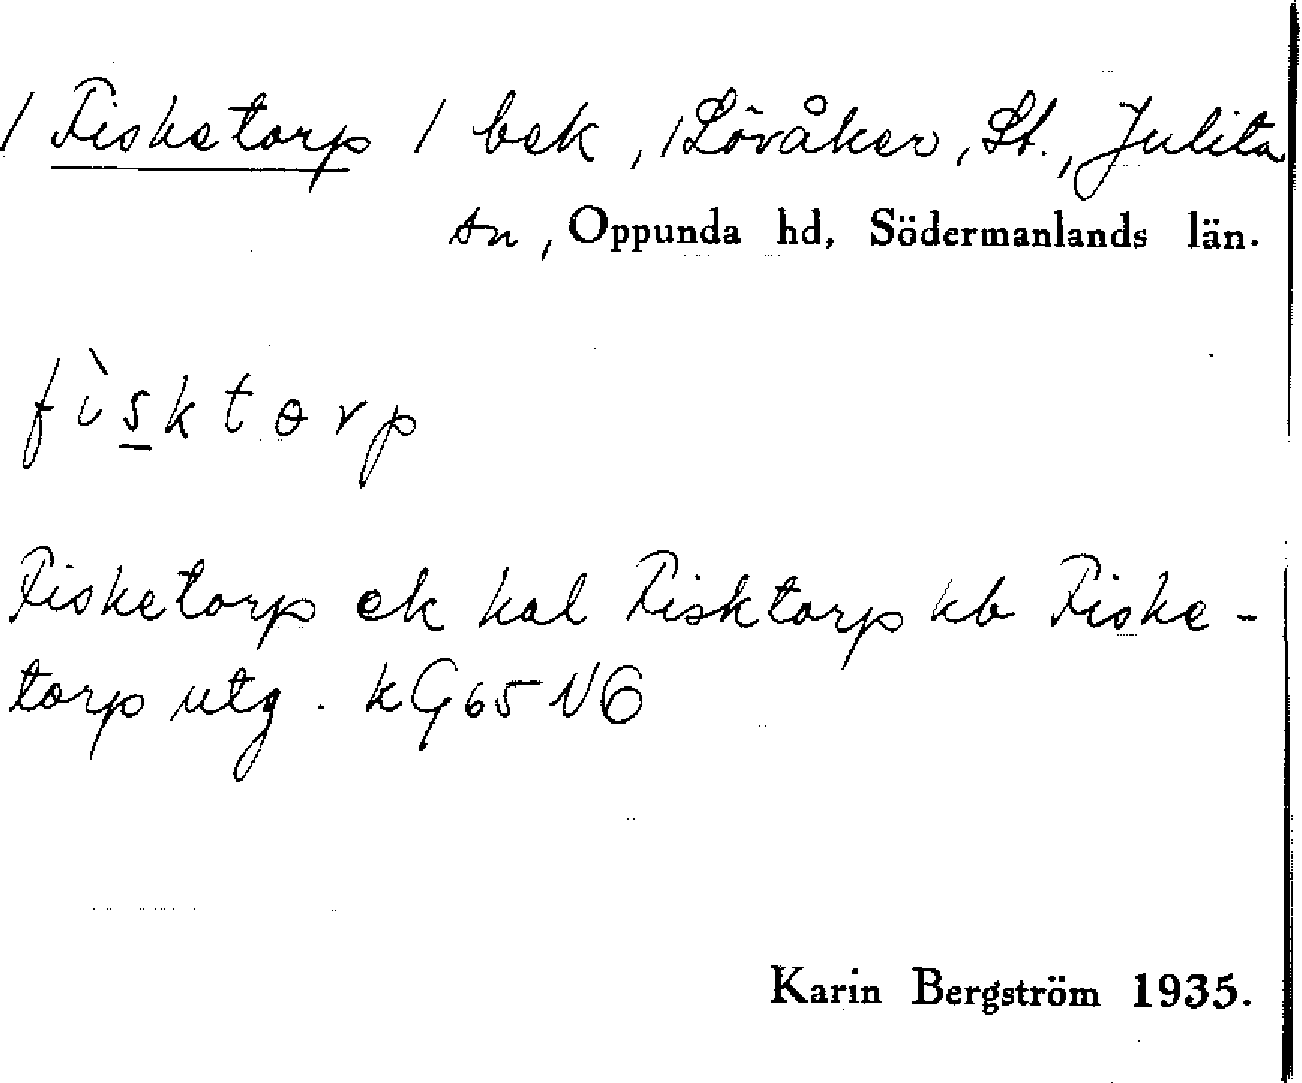 / Fisketorp / bek, /Lövåker, St., Julita
sn, Oppunda hd, Södermanlands län.
fìsktɵrp
Fisketorp ek hal Fisktorp kb Fiske-
torp utg. kG65 NO
Karin Bergström 1935.